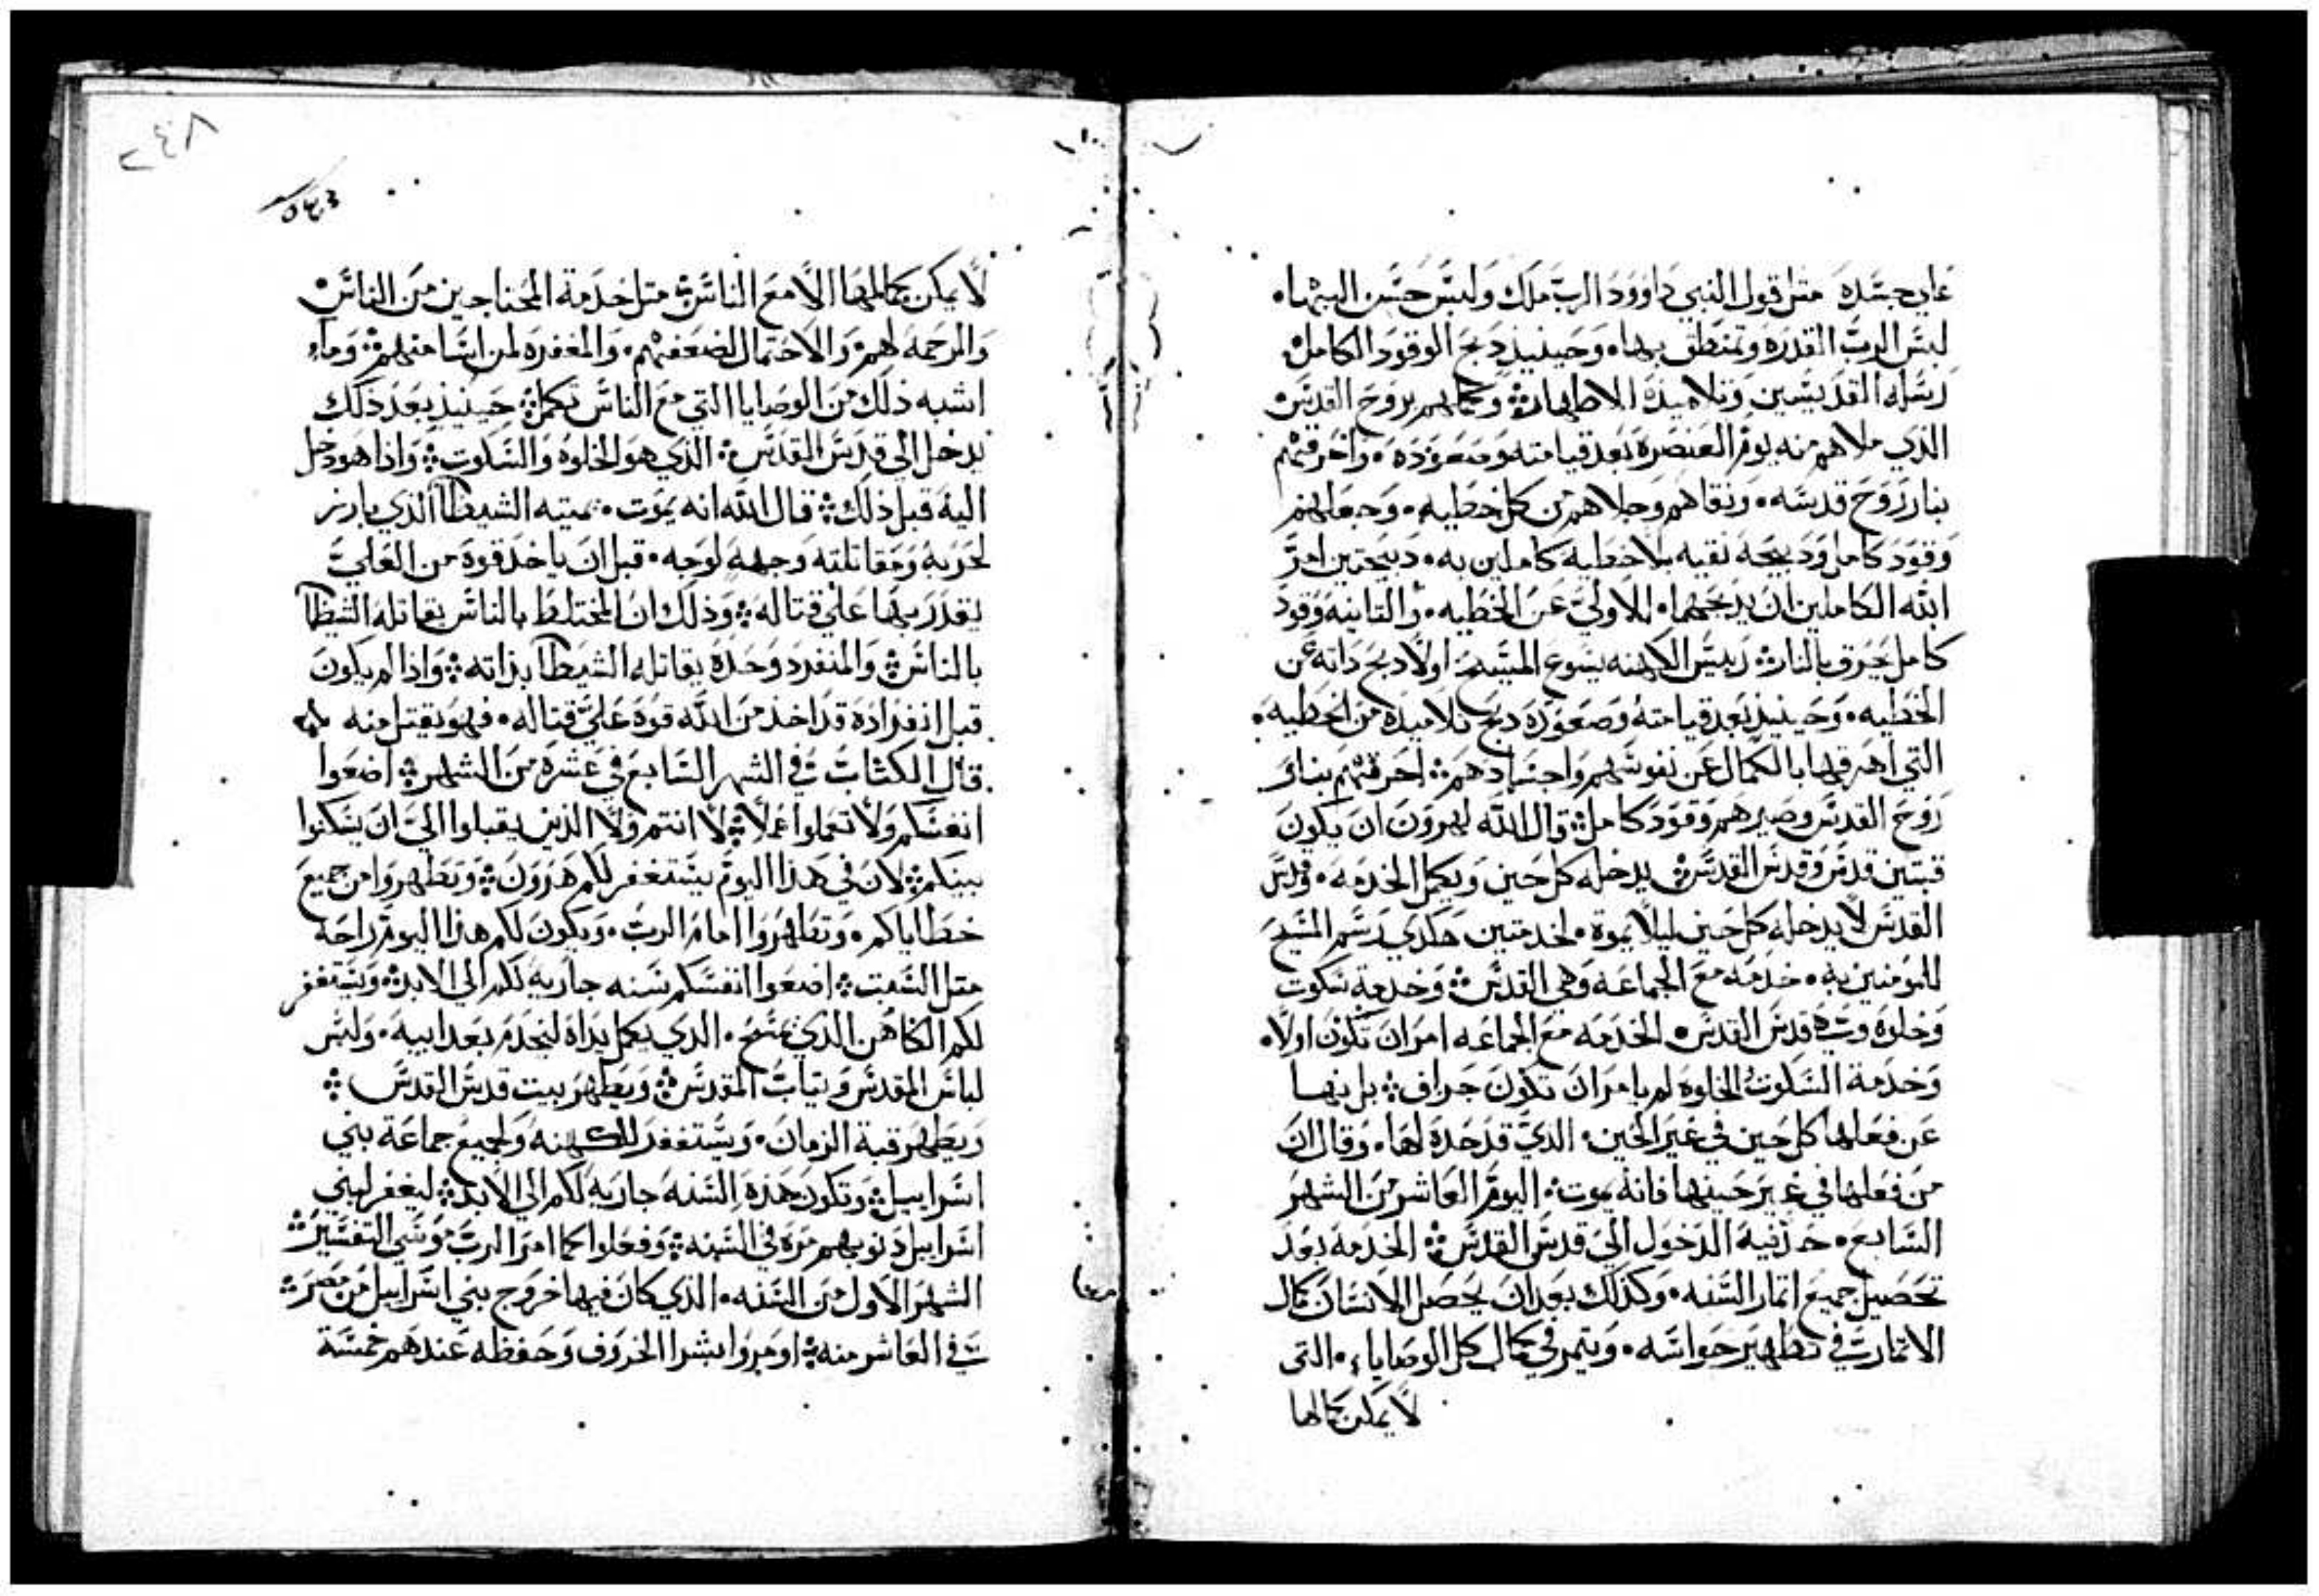 علي جسده مثل قول النبي داوود الرب ملك ولبس حسن البهاء
لبس الرب القدره وتمنطق بهاء وحينيذ دبح الوقود الكامل
رسله القديسين وتلاميذه الاطهار وكملهم بروح القدس
الذي ملاهم منه يوم العنصره بعد قيامته وصعوده واحرقهم
بنار روح قدسه ونقاهم وجلاهم من كل خطيه وجعلهم
وقود كامل ودبيحه نقيه بلا خطيه كاملين به دبيحتين امر
الله الكاملين ان يدبحهما الاولي عن الخطيه والتانيه وقود
كامل يحرق بالنار رييس الكهنه يسوع المسيح اولا دبح داته عن
الخطيه وحينيذ بعد قيامته وصعوده دبح تلاميده من الخطيه
التي اهرقها بالكمال عن نفوسهم واجسادهم احرقهم بنار
روح القدس وصيرهم وقود كامل قال الله لهرون ان يكون
قبتين قدس وقدس القدس يدخله كل حين ويكمل الخدمه وقدس
القدس لا يدخله كل حين ليلا يموت لخدمتين هكدي رسم المسيح
للمومنين به خدمه مع الجماعه وهي القدس وخدمة سكوت
وخلوه وهي قدس القدس الخدمه مع الجماعه امر ان تكون اولا
وخدمة السكوت الخلوه لم يامر ان تكون جراف بل نها
عن فعلها كل حين في غير الحين الذي قد حده لها وقال ان
من فعلها في غير حينها فانه يموت اليوم العاشر من الشهر
السابع حد فيه الدخول الي قدس القدس الخدمه بعد
تحصيل جميع اتمار السنه وكذلك بعد ان يحصل الانسان كمال
الاتمار في تطهير حواسه ويتمر في كمال كل الوصايا التي
لا يمكن كمالها
٢٤٨
لا يمكن كمالها الا مع الناس متل خدمة المحتاجين من الناس
والرحمه لهم والاحتمال لضعفهم والمغفره لمن اسا منهم وما
اشبه ذلك من الوصايا التي مع الناس تكمل حينيذ بعد ذلك
يدخل الي قدس القدس الذي هو الخلوه والسكوت واذا هو دخل
اليه قبل ذلك قال الله انه يموت يميته الشيطان الذي بارز
لحربه ومقاتلته وجهه لوجه قبل ان ياخد قوه من العلي
يقدر بها علي قتاله وذلك ان المختلط بالناس يقاتله الشيطان
بالناس والمنفرد وحده يقاتله الشيطان بذاته واذا لم يكون
قبل انفراده قد اخذ من الله قوه علي قتاله فهو يقتل منه
قال الكتاب في الشهر السابع في عشره من الشهر اضعوا
انفسكم ولا تعملوا عملا لا انتم ولا الذين يقبلوا الي ان يسكنوا
بينكم لان في هذا اليوم يستغفر لكم هرون وتطهروا من جميع
خطاياكم وتطهروا امام الرب ويكون لكم هذا اليوم راحه
متل السبت اضعوا انفسكم سنه جاريه لكم الي الابد ويستغفر
لكم الكاهن الذي يمسح الدي يكمل يداه ليخدم بعد ابيه ولبس
لباس المقدس وتياب المقدس ويطهر بيت قدس القدس
ويطهر قبة الزمان ويستغفر للكهنه ولجميع جماعة بني
اسراييل وتكون هذه السنه جاريه لكم الي الابد ليغفر لبني
اسراييل دنوبهم مره في السنه وفعلوا كما امر الرب موسي التفسير
الشهر الاول من السنه الذي كان فيها خروج بني اسراييل من مصر
في العاشر منه اومروا بشرا الخروف وحفظه عندهم خمسة